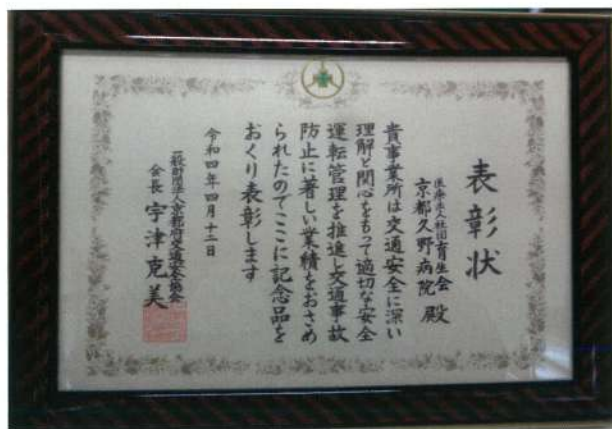 表彰状
医療法人社団育生会
京都久野病院 殿
貴事業所は交通安全に深い
理解と関心をもって適切な安全
運転管理を推進し交通事故
防止に著しい業績をおさめ
られたのでここに記念品を
おくり表彰します
令和四年四月十二日
一般財団法人京都府交通安全協会
会長 宇津克美